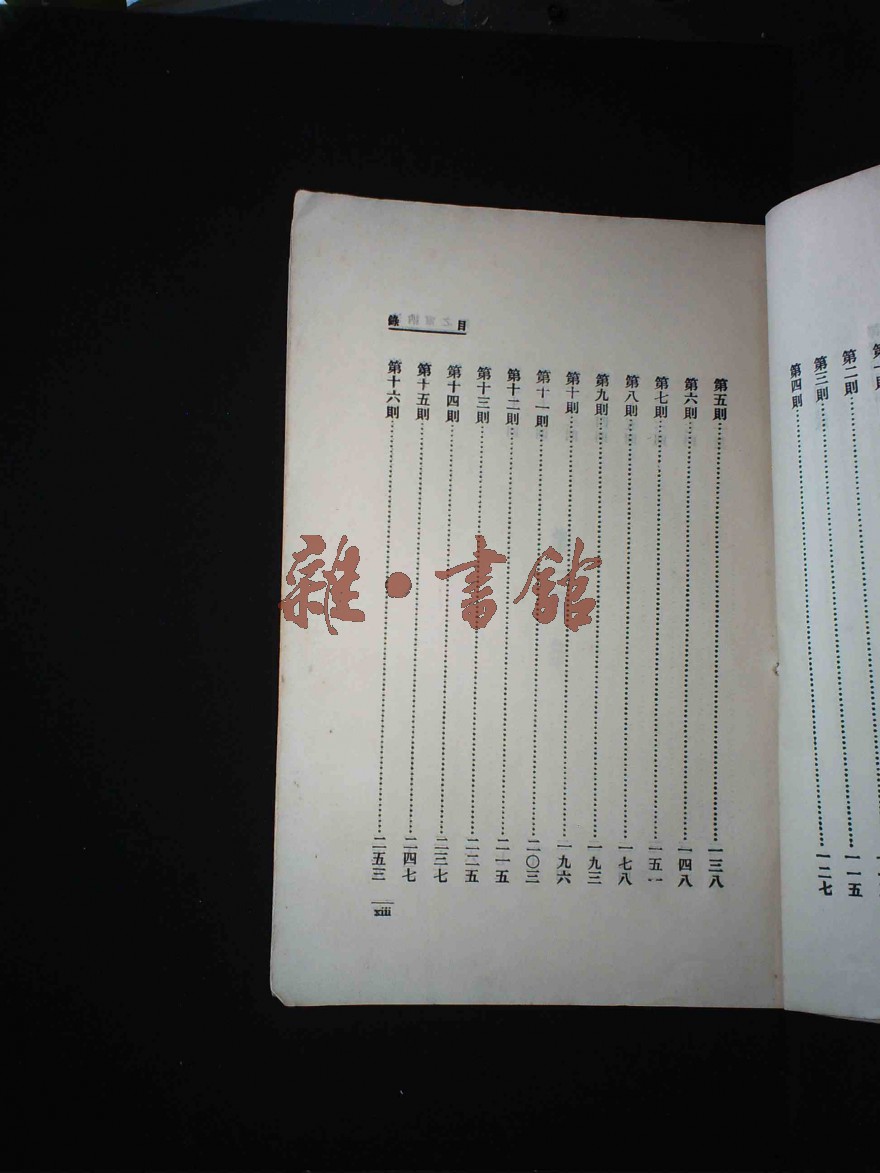 第二則
第三則 一一五
第四則 一二七
目錄
第五則 一三八
第六則 一四八
第七則 一五一
第八則 一七八
第九則 一九三
第十則 一九六
第十一則 二〇三
第十二則 二一五
第十三則 二二五
第十四則 二三七
第十五則 二四七
第十六則 二五三
xiii
雜·書館